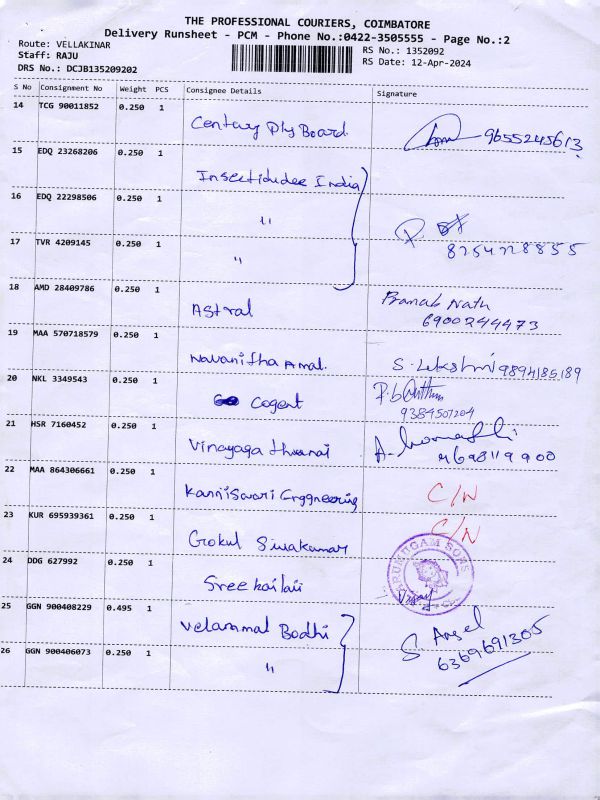 THE PROFESSIONAL COURIERS, COIMBATORE
Delivery Runsheet - PCM - Phone No.:0422-3505555 - Page No.:2
Route: VELLAKINAR
Staff: RAJU
DRS No.: DCJB135209202
RS No.: 1352092
RS Date: 12-Apr-2024
S No Consignment No Weight PCS Consignee Details Signature
14 TCG 90011852 0.250 1 Century Ply Board 9655245613
15 EDQ 23268206 0.250 1 India
16 EDQ 22298506 0.250 1 "
17 TVR 4209145 0.250 1 " 8754728855
18 AMD 28409786 0.250 1 Astral Pranab Nath
6900244473
19 MAA 570718579 0.250 1 Navanitha Amal. S. Lekshmi 9894185189
20 NKL 3349543 0.250 1 Cogent
9384507204
21 HSR 7160452 0.250 1 Vinayaga 9698119900
22 MAA 864306661 0.250 1 C/N
23 KUR 695939361 0.250 1 Gokul Sivakumar C/N
24 DDG 627992 0.250 1 Sree ARUMUGAM SONS
Vijay
25 GGN 900408229 0.495 1 Velammal Bodhi S. Angel
6369691305
26 GGN 900406073 0.250 1 "